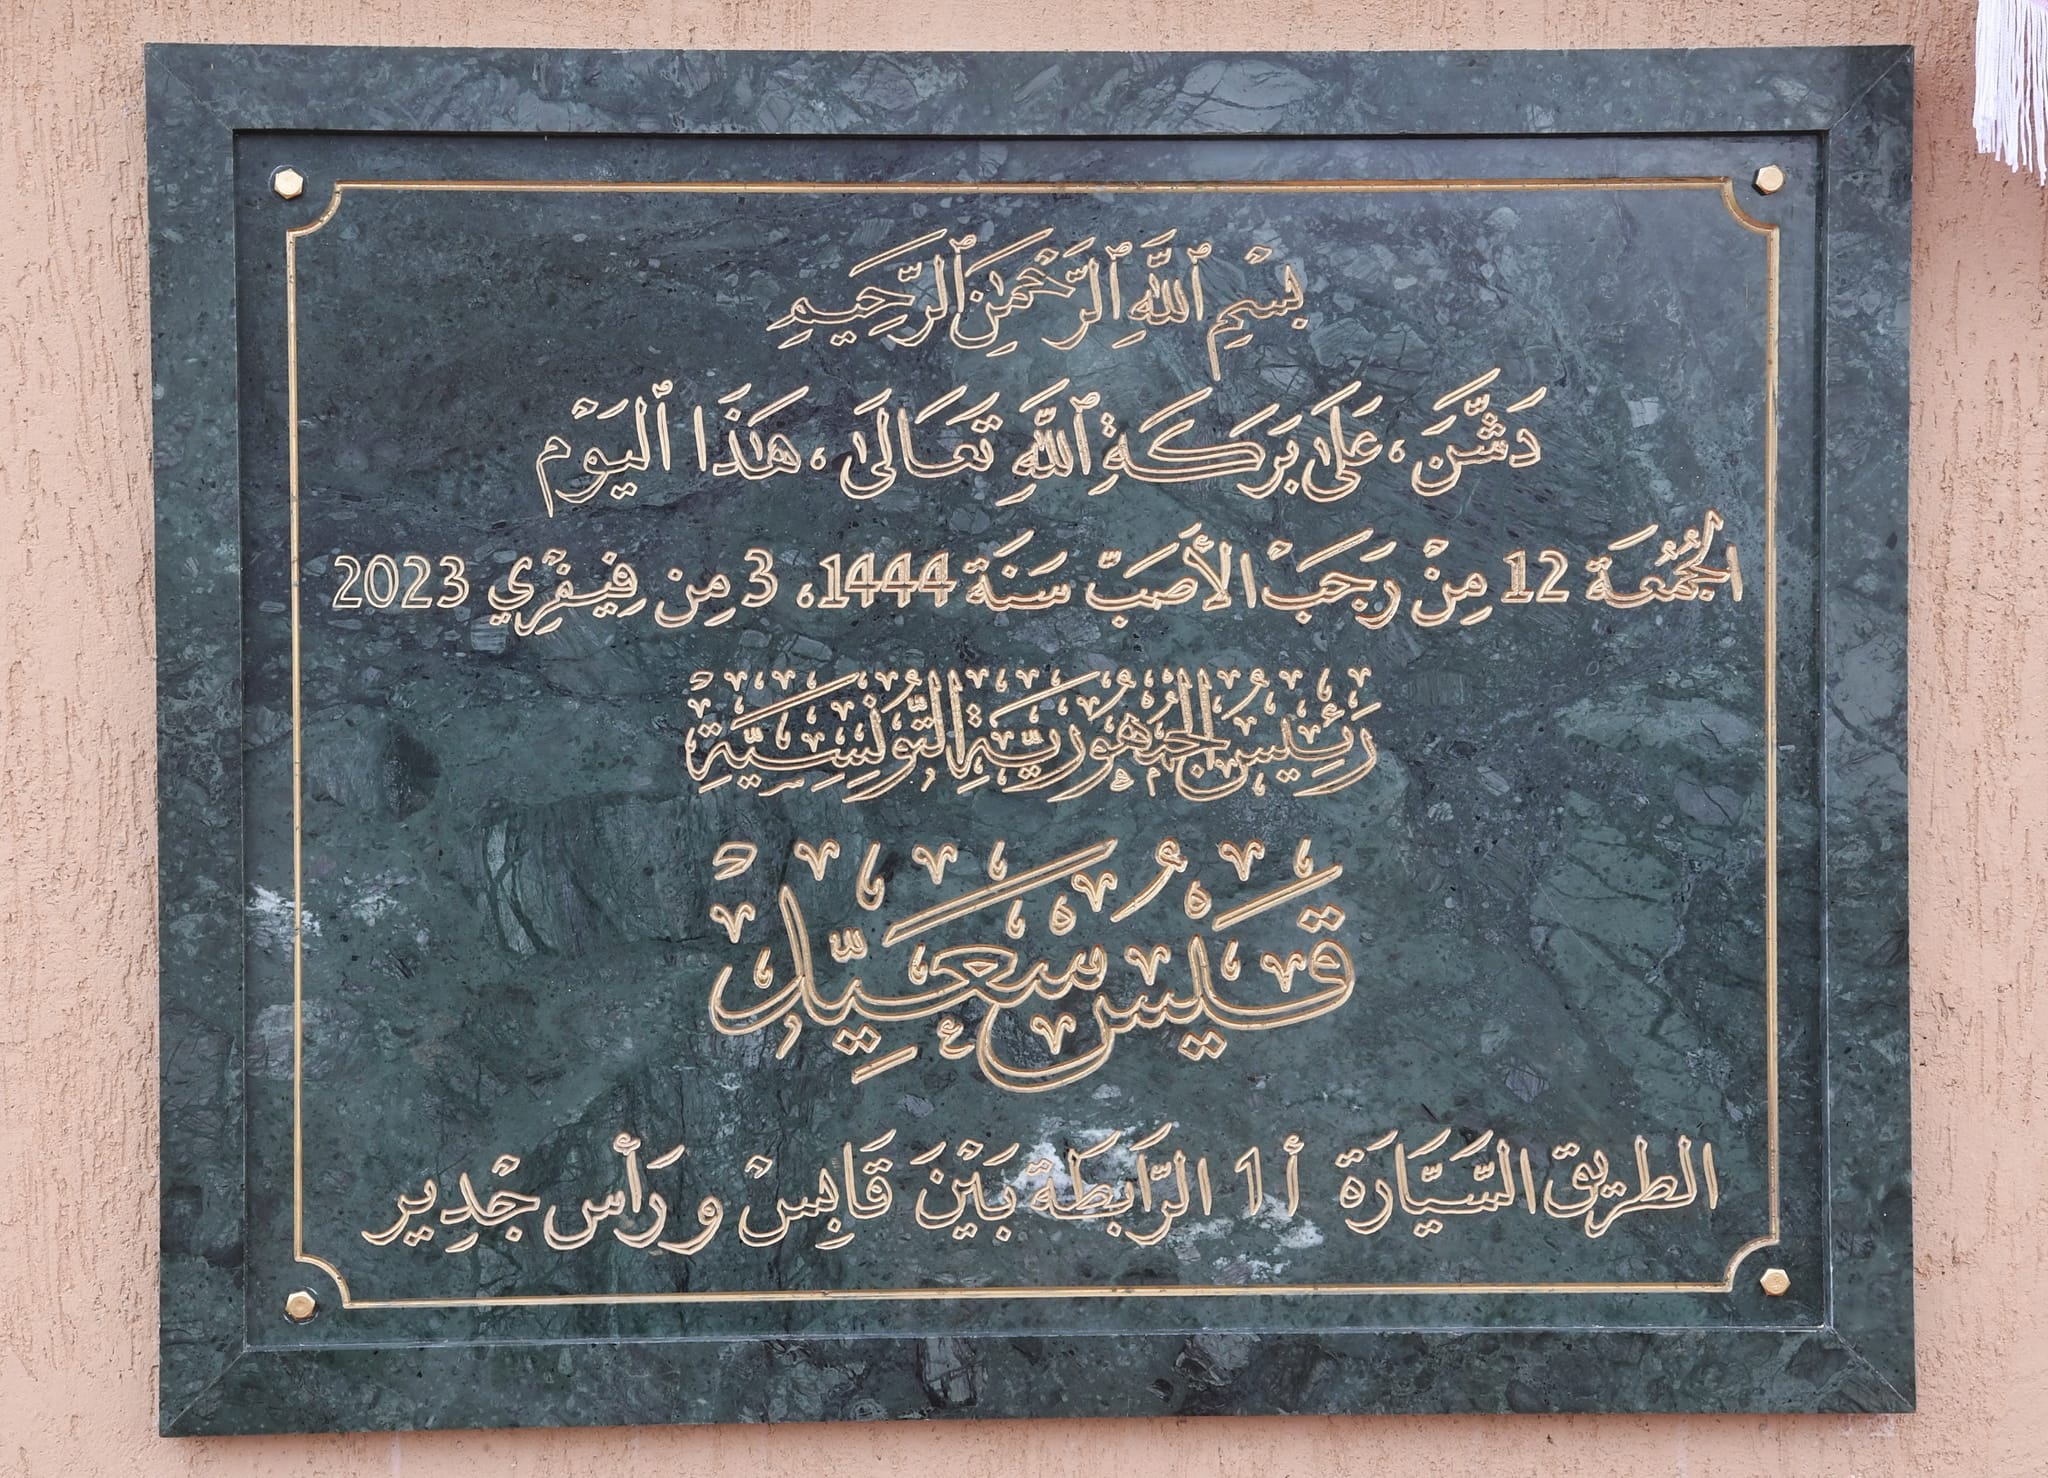 بِسْمِ ٱللَّهِ ٱلرَّحْمَٰنِ ٱلرَّحِيمِ
دَشَّنَ، عَلَى بَرَكَةِ ٱللَّهِ تَعَالَى، هَٰذَا ٱليَوْم
الجُمُعَة 12 مِنْ رَجَبْ الأَصَبّ سَنَة 1444، 3 مِن فِيفْرِي 2023
رَئِيسُ الجُمْهُورِيَّةِ التُّونِسِيَّةِ
قَيْسْ سْعَيِّدْ
الطريق السَّيَّارَة أ1 الرَّابَطَة بَيْنَ قَابِسْ و رَأس جْدِير